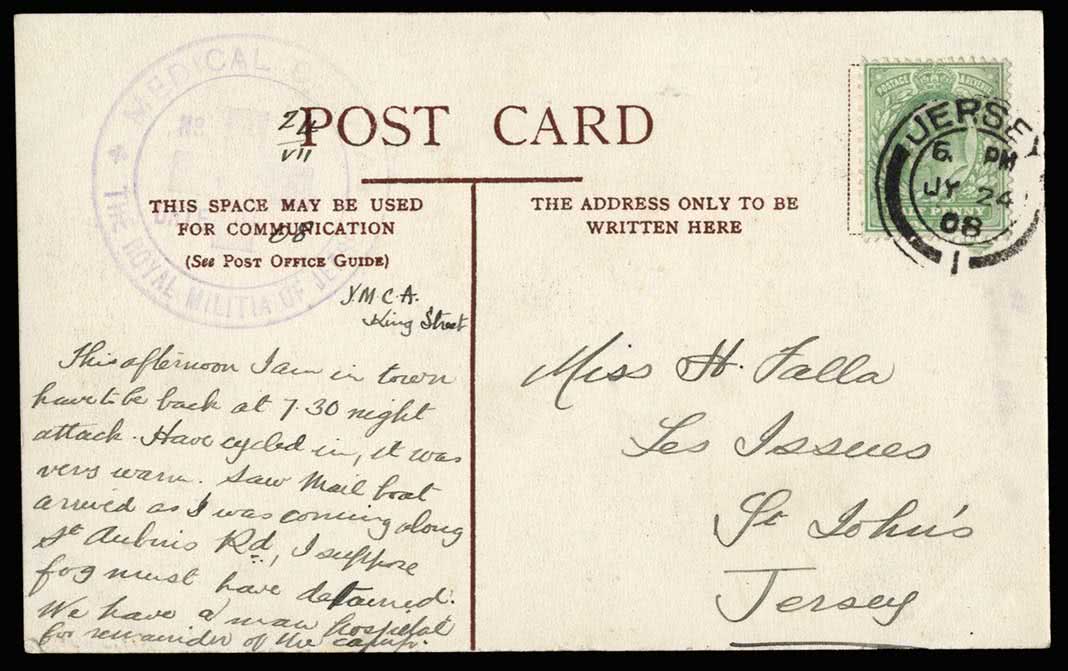 MEDICAL
THE ROYAL MILITIA OF
No
DATE
24
VII
08
POST CARD
THIS SPACE MAY BE USED
FOR COMMUNICATION
(See POST OFFICE GUIDE)
THE ADDRESS ONLY TO BE
WRITTEN HERE
POSTAGE & REVENUE
PENNY
JERSEY
6. PM
JY 24
08
1
Y.M.C.A.
King Street
This afternoon I am in town
have to be back at 7.30 night
attack. Have cycled in, it was
very warm. Saw Mail boat
arrived as I was coming along
St Aubins Rd, I suppose
fog must have detained.
We have a man hospital
for remainder of the camp.
Miss H. Falla
Les Issues
St John's
Jersey